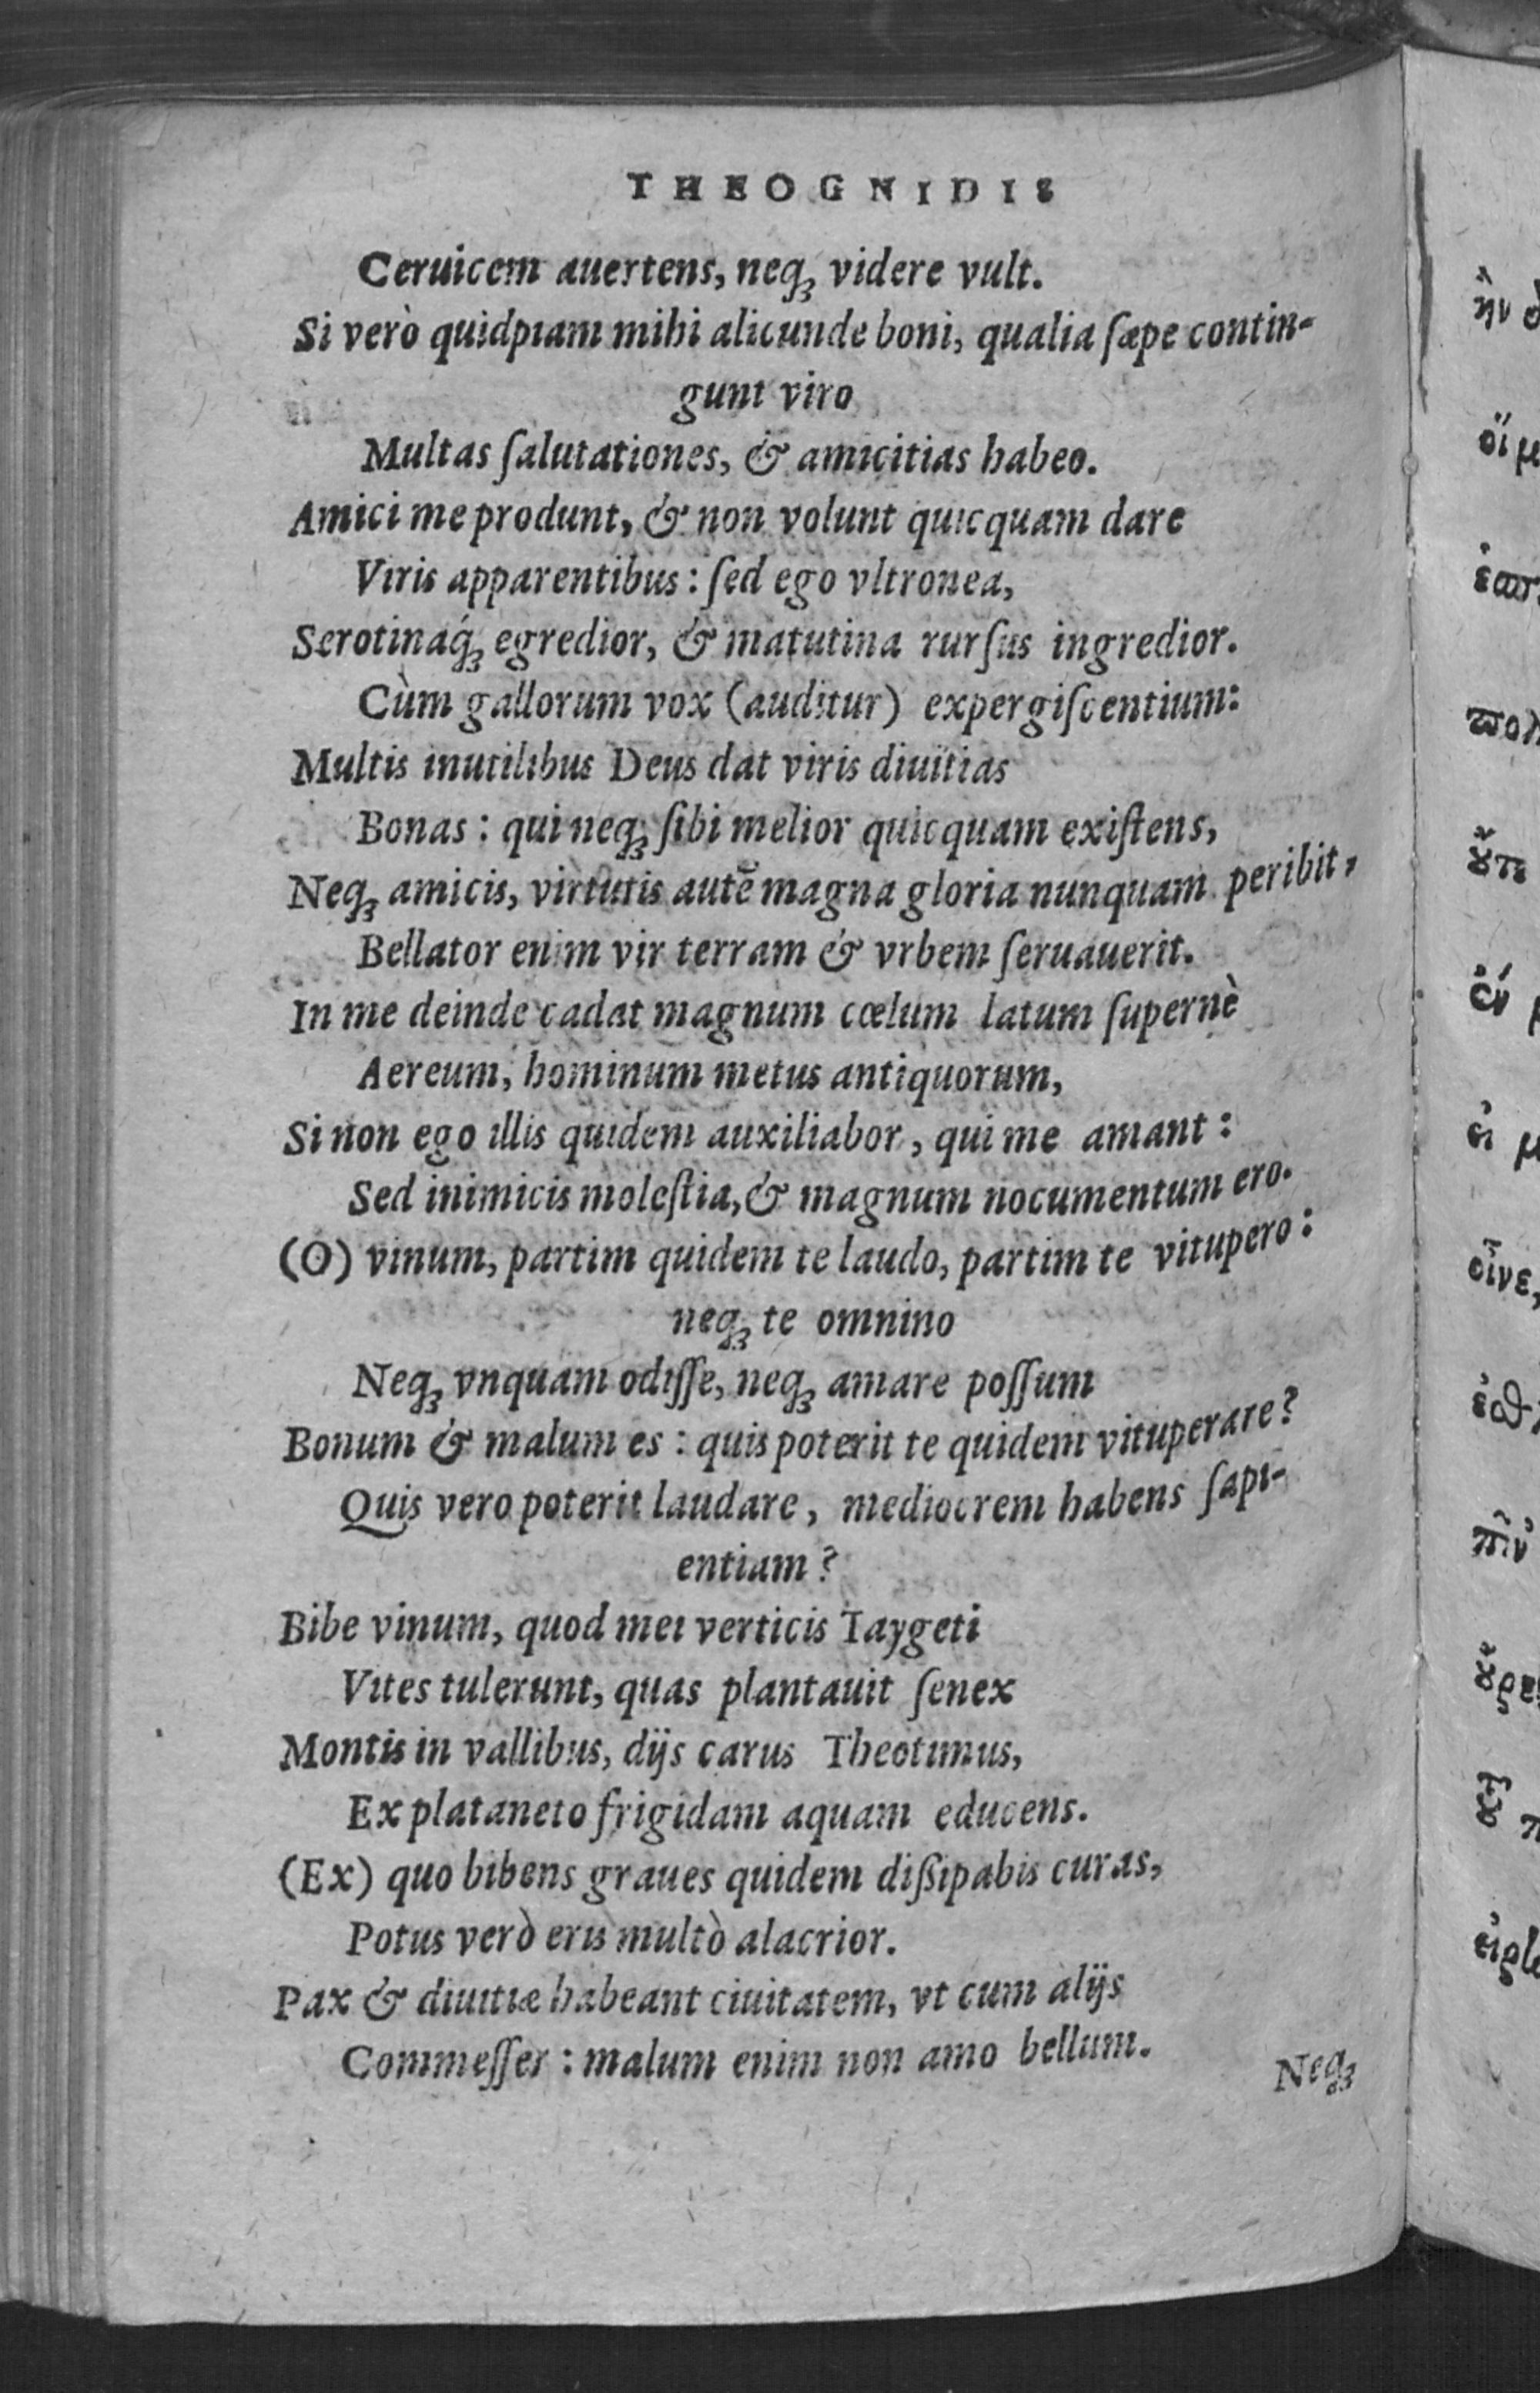 THEOGNIDIS
Ceruicem auertens, neqꝫ videre vult.
Si verò quidpiam mihi alicunde boni, qualia ſæpe contin-
gunt viro
Multas ſalutationes, & amicitias habeo.
Amici me produnt, & non volunt quicquam dare
Viris apparentibus: ſed ego vltronea,
Serotinaq́ꝫ egredior, & matutina rurſus ingredior.
Cùm gallorum vox (auditur) expergiſcentium:
Multis inutilibus Deus dat viris diuitias
Bonas: qui neqꝫ ſibi melior quicquam exiſtens,
Neqꝫ amicis, virtutis autē magna gloria nunquam peribit,
Bellator enim vir terram & vrbem ſeruauerit.
In me deinde cadat magnum cœlum latum ſupernè
Aereum, hominum metus antiquorum,
Si non ego illis quidem auxiliabor, qui me amant:
Sed inimicis moleſtia, & magnum nocumentum ero.
(O) vinum, partim quidem te laudo, partim te vitupero:
neqꝫ te omnino
Neqꝫ vnquam odiſſe, neqꝫ amare poſſum
Bonum & malum es: quis poterit te quidem vituperare?
Quis vero poterit laudare, mediocrem habens ſapi-
entiam?
Bibe vinum, quod mei verticis Taygeti
Vites tulerunt, quas plantauit ſenex
Montis in vallibus, dijs carus Theotimus,
Ex plataneto frigidam aquam educens.
(Ex) quo bibens graues quidem dißipabis curas,
Potus verò eris multò alacrior.
Pax & diuitiæ habeant ciuitatem, vt cum alijs
Commeſſer: malum enim non amo bellum.
Neqꝫ